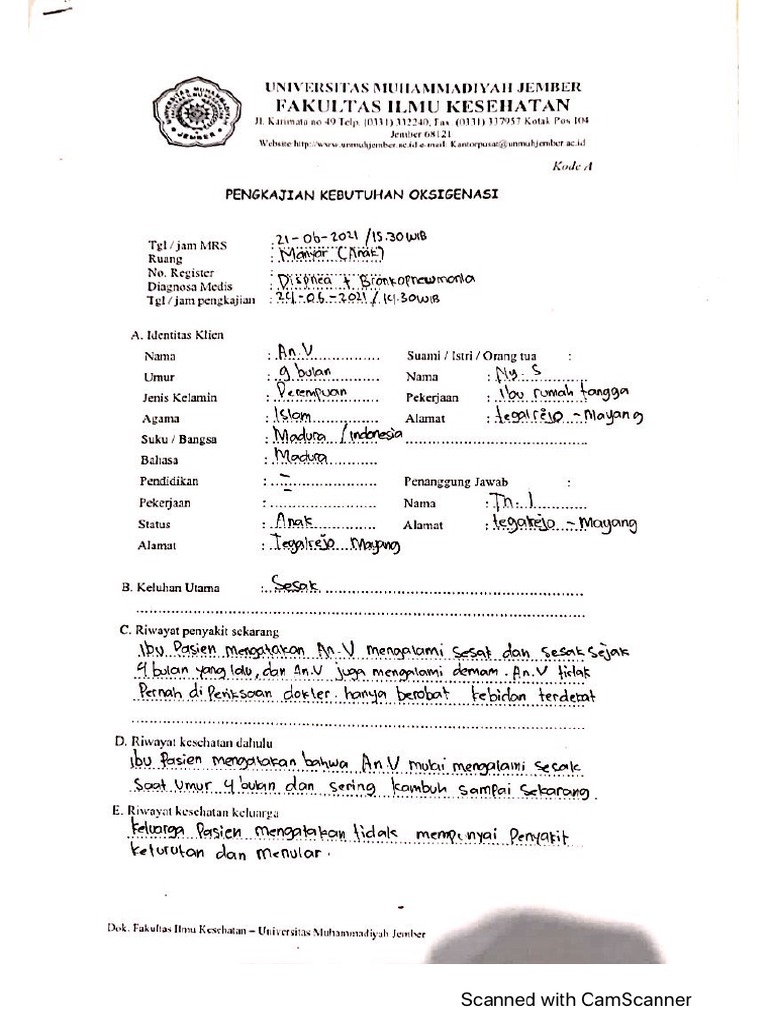 UNIVERSITAS MUHAMMADIYAH JEMBER
FAKULTAS ILMU KESEHATAN
Jl. Karimata no 49 Telp. (0331) 332240, Fax. (0331) 337957 Kotak Pos 104
Jember 68121
Website http://www.unmuhjember.ac.id e-mail: Kantorpusat@unmuhjember.ac.id
UNIVERSITAS MUHAMMADIYAH
JEMBER
Kode A
PENGKAJIAN KEBUTUHAN OKSIGENASI
Tgl / jam MRS : 21-06-2021 /15.30 WIB
Ruang : Manyar (Anak)
No. Register :
Diagnosa Medis : Dispnea + Bronkopneumonia
Tgl / jam pengkajian : 24-06-2021 / 14.30 WIB
A. Identitas Klien
Nama : An. V Suami / Istri / Orang tua :
Umur : 9 bulan Nama : Ny. S
Jenis Kelamin : Perempuan Pekerjaan : Ibu rumah tangga
Agama : Islam Alamat : tegalrejo - Mayang
Suku / Bangsa : Madura / Indonesia
Bahasa : Madura
Pendidikan : - Penanggung Jawab :
Pekerjaan : - Nama : Tn. I
Status : Anak Alamat : tegalrejo - Mayang
Alamat : Tegalrejo Mayang
B. Keluhan Utama : Sesak
C. Riwayat penyakit sekarang
Ibu Pasien mengatakan An.V mengalami sesak dan sesak sejak
4 bulan yang lalu, dan An.V juga mengalami demam. An.V tidak
Pernah di Periksaan dokter. hanya berobat kebidan terdekat
D. Riwayat kesehatan dahulu
Ibu Pasien mengatakan bahwa An.V mulai mengalami sesak
saat Umur 4 bulan dan sering kambuh sampai sekarang.
E. Riwayat kesehatan keluarga
Keluarga Pasien mengatakan tidak mempunyai Penyakit
keturutan dan menular.
Dok. Fakultas Ilmu Kesehatan – Universitas Muhammadiyah Jember
Scanned with CamScanner